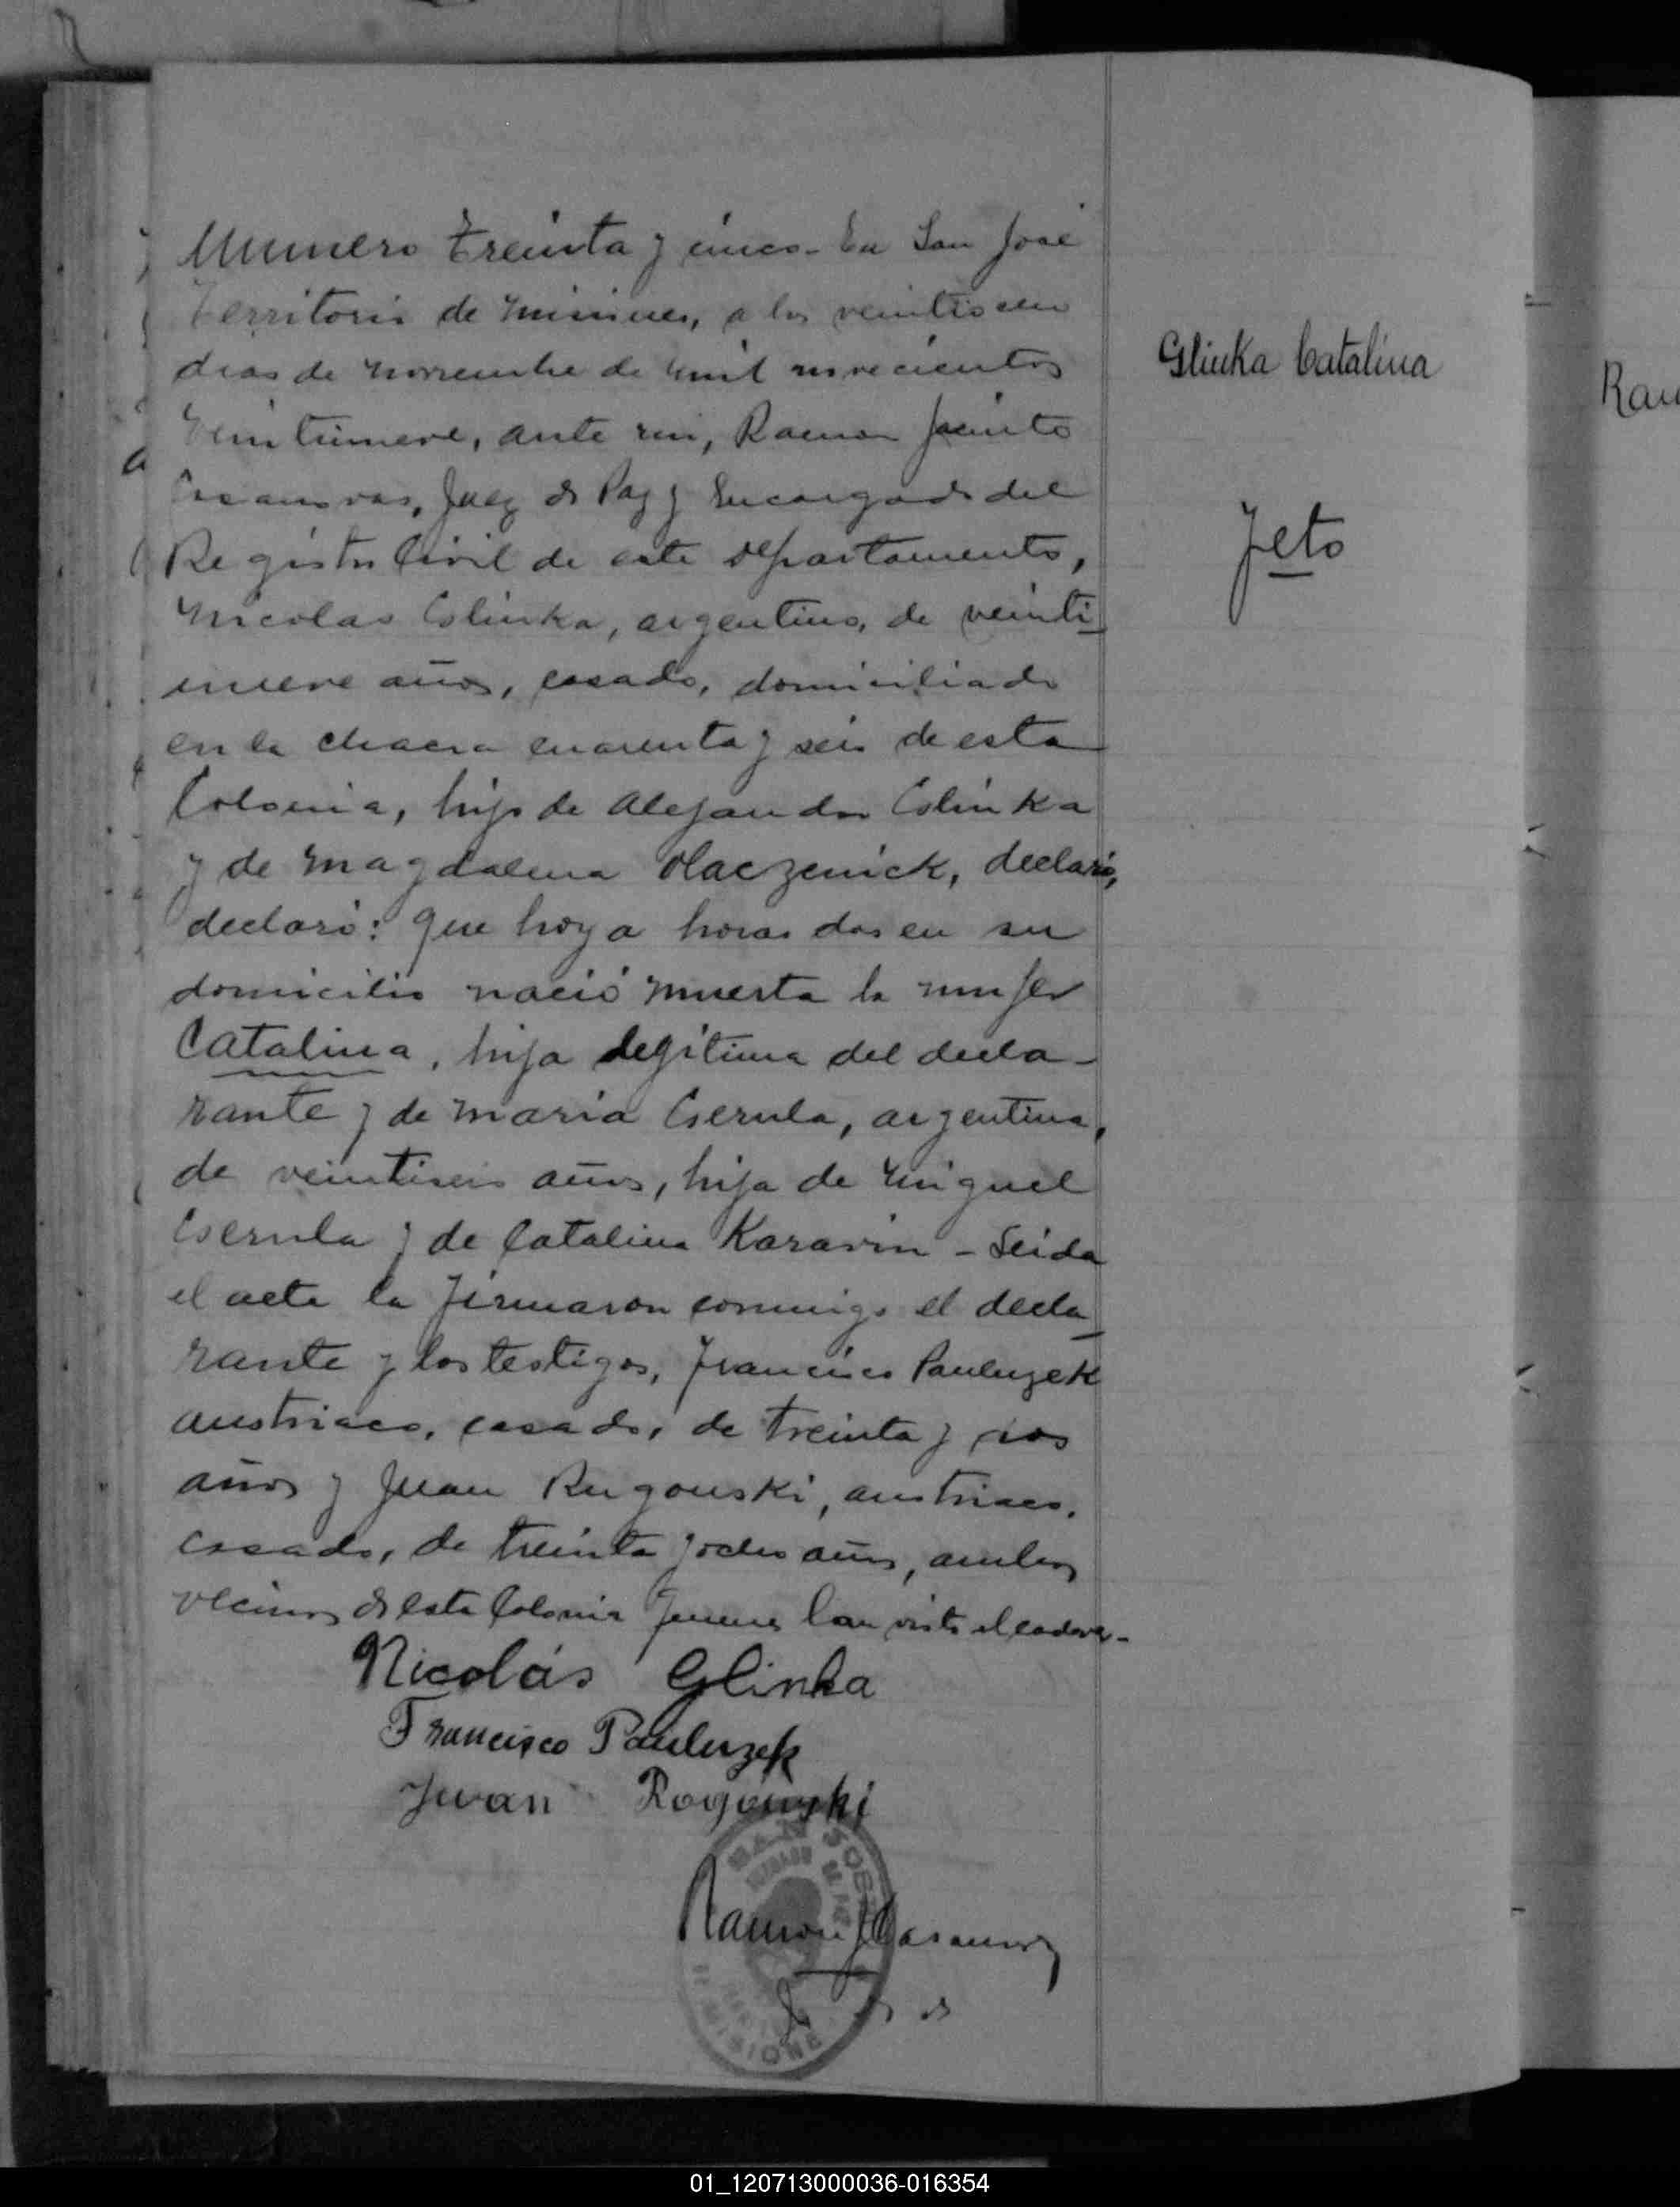 Numero treinta y cinco - En San José
territorio de Misiones, a los veintiseis
dias de noviembre de mil novecientos
veintinueve, ante mi, Ramon Jacinto
Casanovas, Juez de Paz y Encargado del
Registro Civil de este departamento,
Nicolas Glinka, argentino, de veinti
nueve años, casado, domiciliado
en la chacra cuarenta y seis de esta
Colonia, hijo de Alejandro Glinka
y de Magdalena Haczenick, declaró,
declaró: Que hoy a horas dos en su
domicilio nació muerta la mujer
Catalina, hija legitima del decla-
rante y de Maria Gserula, argentina,
de veintiseis años, hija de Miguel
Gserula y de Catalina Karavin - Leida
el acta la firmaron conmigo el decla
rante y los testigos, Francisco Pauluzek
austriaco, casado, de treinta y dos
años y Juan Rugouski, austriaco,
casado, de treinta y ocho años, ambos
vecinos de esta Colonia y quienes han visto el cadaver-
Nicolás Glinka
Francisco Pauluzek
Juan Rogowski
Ramon J Casanovas
SAN JOSE
MISIONES
Glinka Catalina
Feto
Ram
01_120713000036-016354